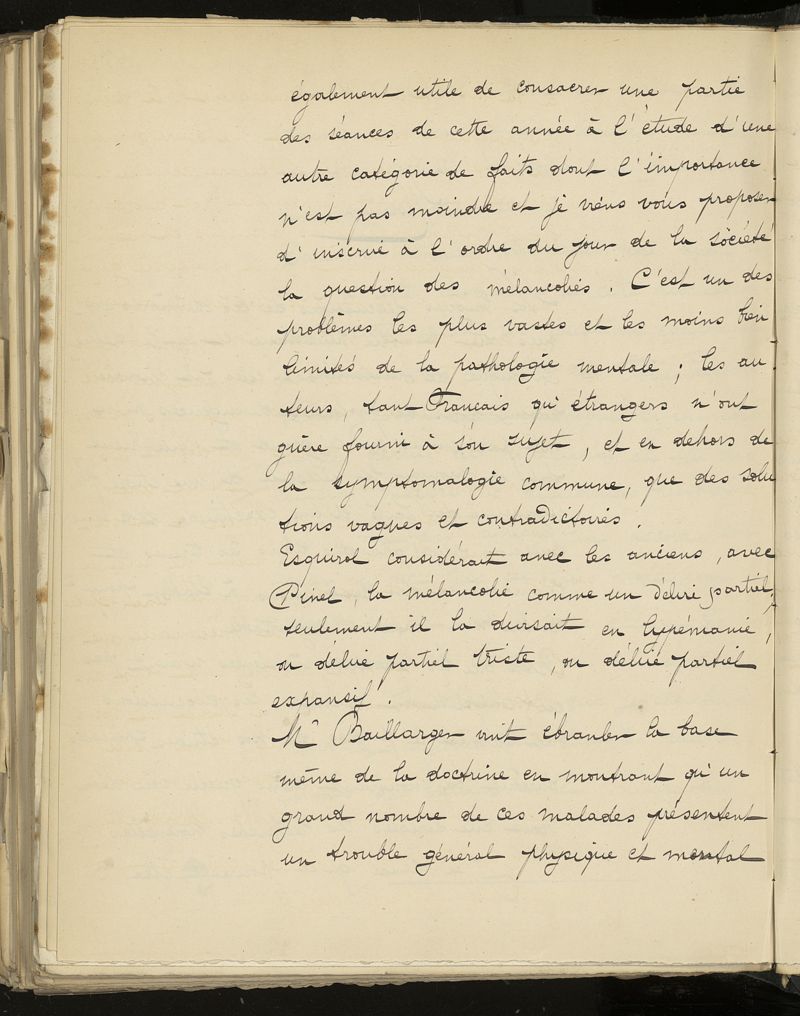 également utile de consacrer une partie
des séances de cette année à l'étude d'une
autre catégorie de faits dont l'importance
n'est pas moindre et je viens vous proposer
d'inscrire à l'ordre du jour de la société
la question des mélancolies. C'est un des
problèmes les plus vastes et les moins bien
limités de la pathologie mentale ; les au-
teurs, tant Français qu'étrangers n'ont
guère fourni à son sujet, et en dehors de
la symptomalogie commune, que des solu
tions vagues et contradictoires.
Esquirol considérait avec les anciens, avec
Pinel, la mélancolie comme un délire partiel,
seulement il la divisait en lypémanie,
ou délire partiel triste, ou délire partiel
expansif.
Mr Baillarger vint ébranler la base
même de la doctrine en montrant qu'un
grand nombre de ces malades présentent
un trouble général physique et mental